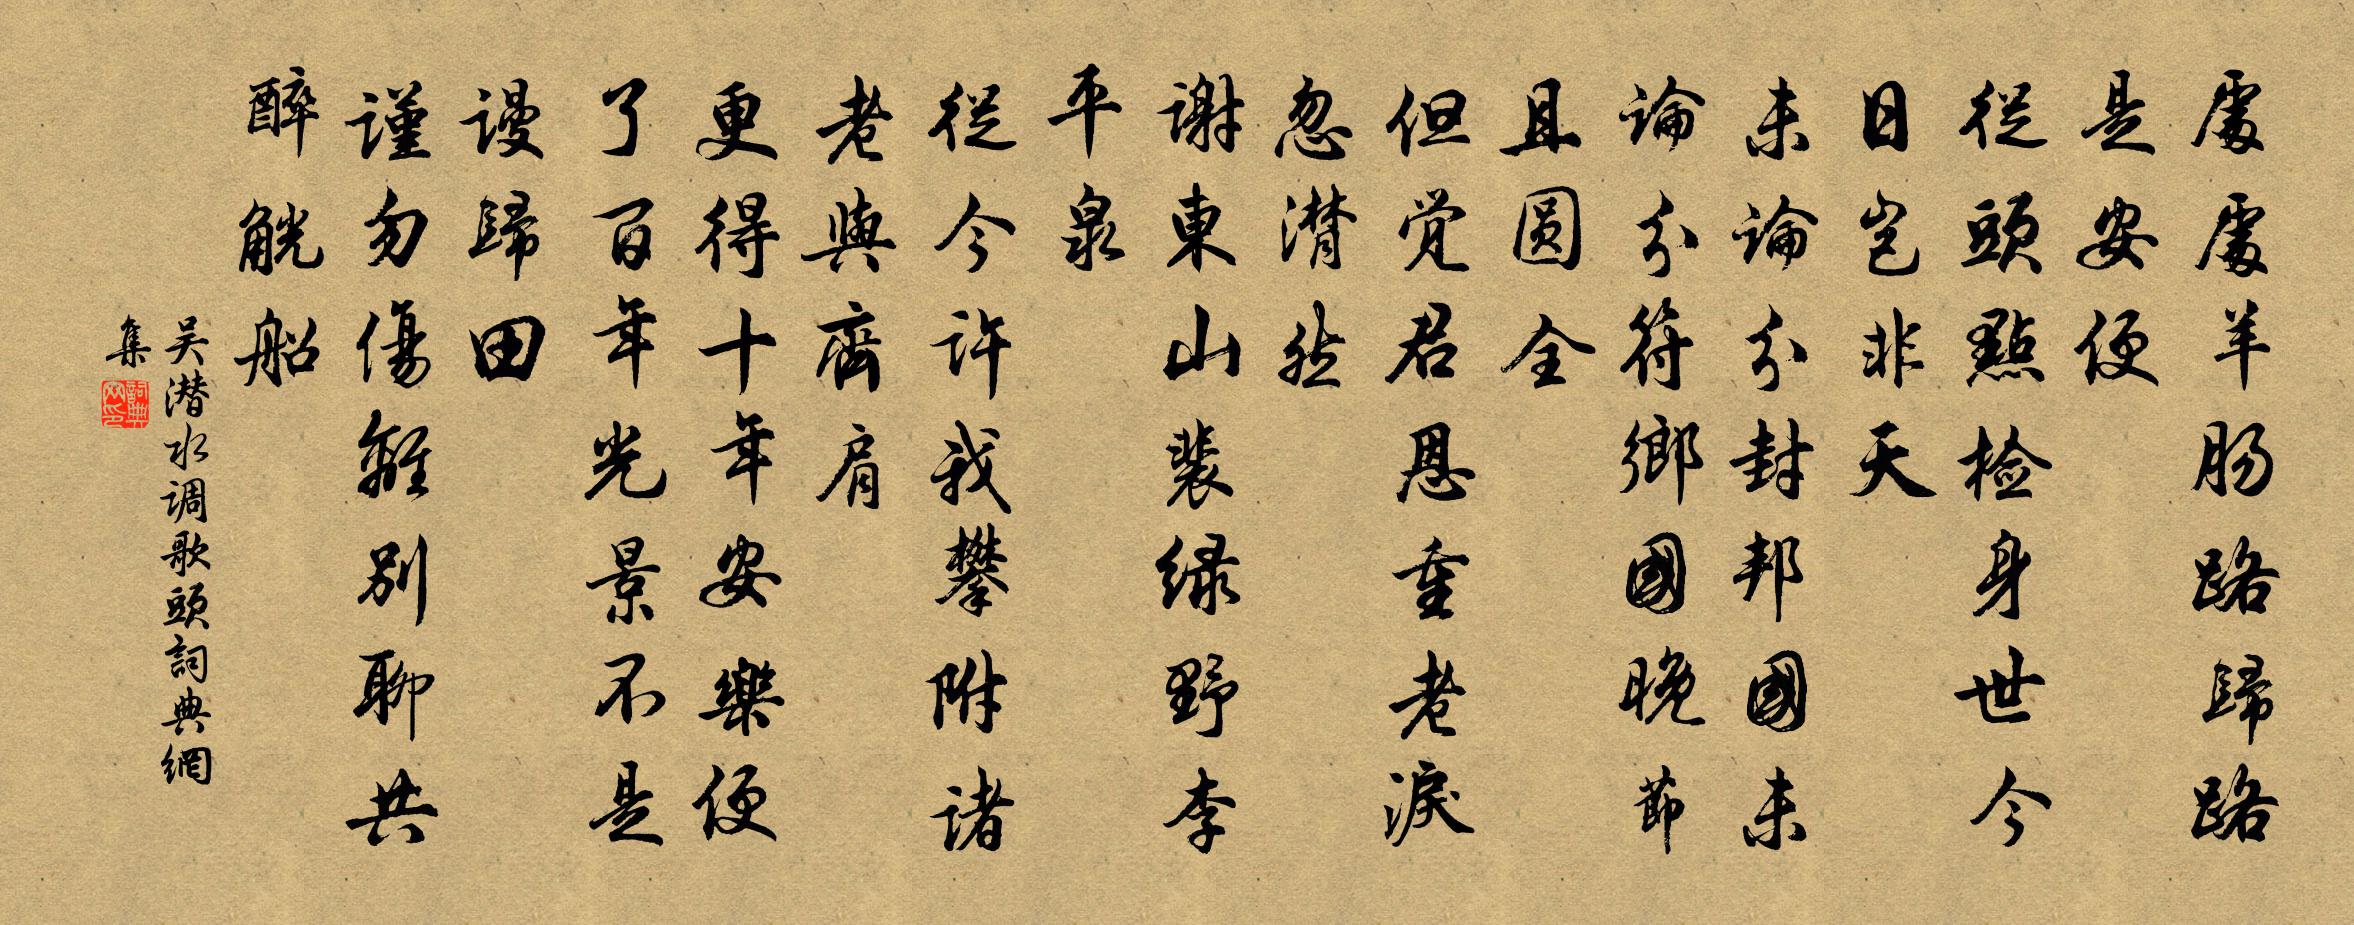 處處羊肠路歸路
是安便
從頭點检身世今
日岂非天
未論分封邦國未
論分符鄉國晚節
且圆全
但觉君恩重老淚
忽潸然
謝東山裴绿野李
平泉
從今许我攀附诸
老與齊肩
更得十年安樂便
了百年光景不是
谩歸田
谨勿傷離别聊共
醉觥船
吴潜水调歌頭詞典網
集
詞典
网印